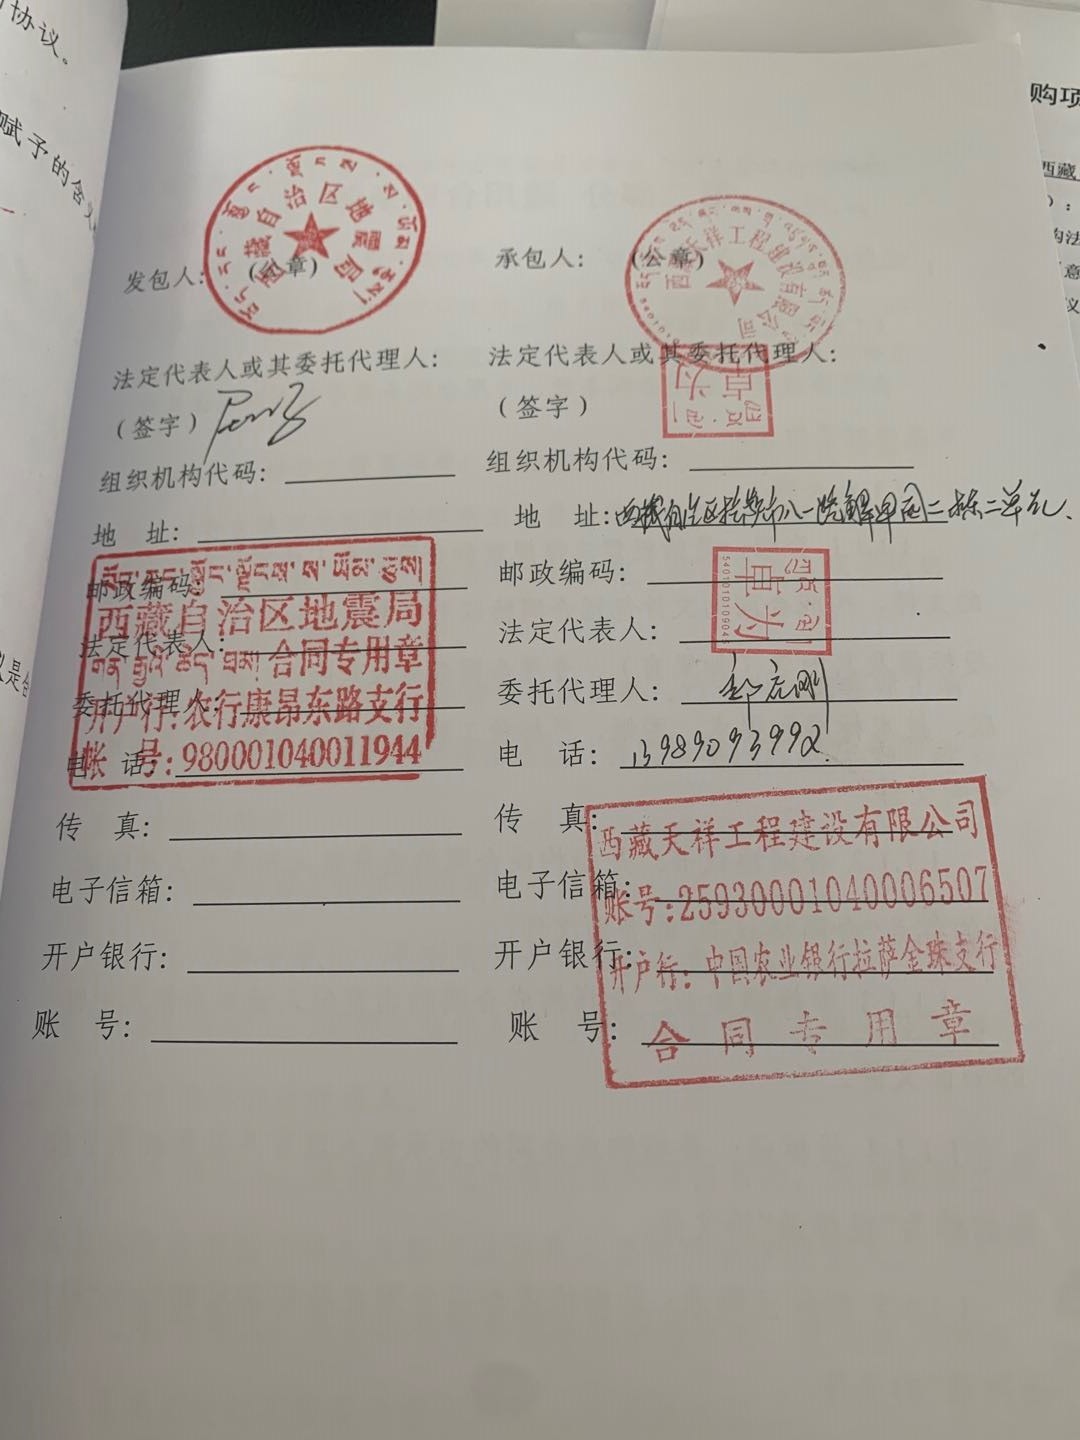 协议。
赋予的含义
购项
西藏
发包人: (公章)
西藏自治区地震局
承包人: (公章)
西藏天祥工程建设有限公司
法定代表人或其委托代理人:
(签字)
法定代表人或其委托代理人:
(签字)
卓为
组织机构代码:
组织机构代码:
地 址:
地 址:西藏自治区拉萨市八一院
二栋二单元.
邮政编码:
邮政编码:
法定代表人:
法定代表人:
卓为
委托代理人:
委托代理人:
电 话:
电 话: 13989093992
西藏自治区地震局
合同专用章
开户行:农行康昂东路支行
帐 号:980001040011944
传 真:
传 真:
电子信箱:
电子信箱:
开户银行:
开户银行:
账 号:
账 号:
西藏天祥工程建设有限公司
账号:25930001040006507
开户行:中国农业银行拉萨金珠支行
合同专用章